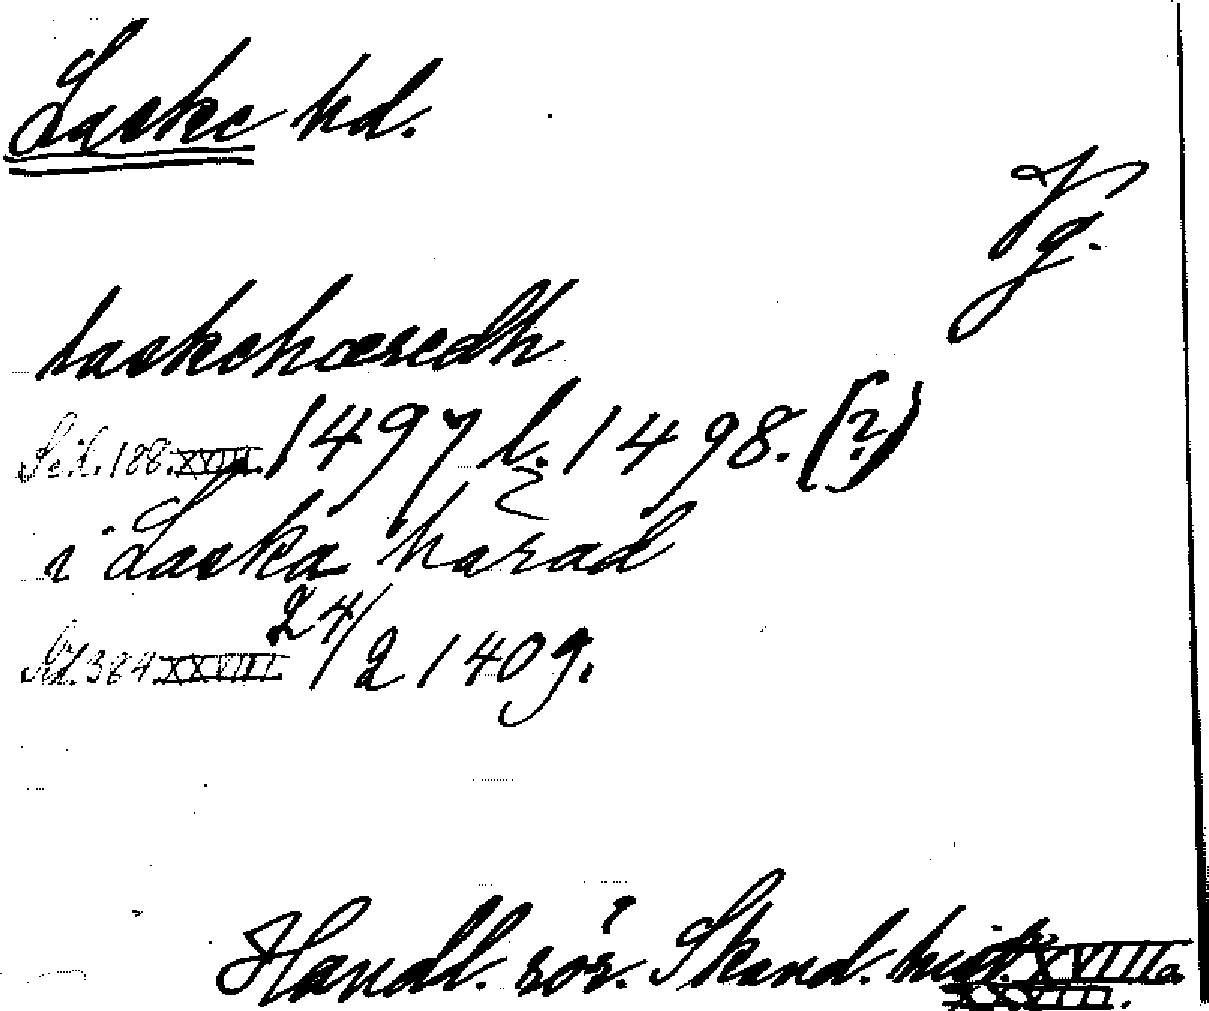 Laske hd.
Vg.
laskehæredh
Sid. 188. XVIII. 1497 l. 1498. (?)
i Laska harad
Sid. 384 XXVIII. 24/2 1409.
Handl. rör. Skand. hist. XVIIIa
XXVIII.